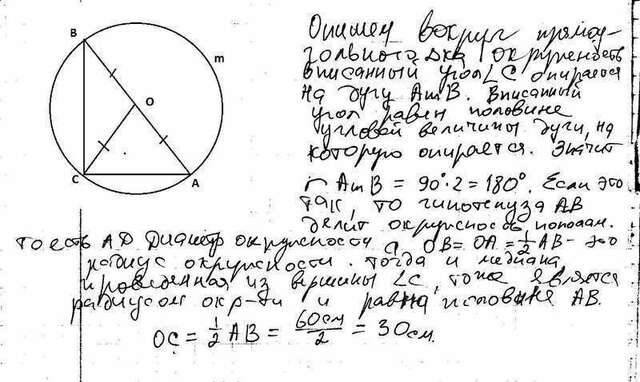 B
m
O
C
A
Опишем вокруг прямоу-
гольного Δка окружность
вписанный угол ∠C опирается
на дугу AmB. Вписанный
угол равен половине
угловой величины дуги, на
которую опирается. Значит
AmB = 90°·2 = 180°. Если это
так, то гипотенуза AB
делит окружность пополам.
то есть AB диаметр окружности, а OB = OA = 1/2 AB – это
радиус окружности. Тогда и медиана,
проведённая из вершины ∠C, тоже является
радиусом окр-ти и равна половине AB.
OC = 1/2 AB = 60см/2 = 30см.